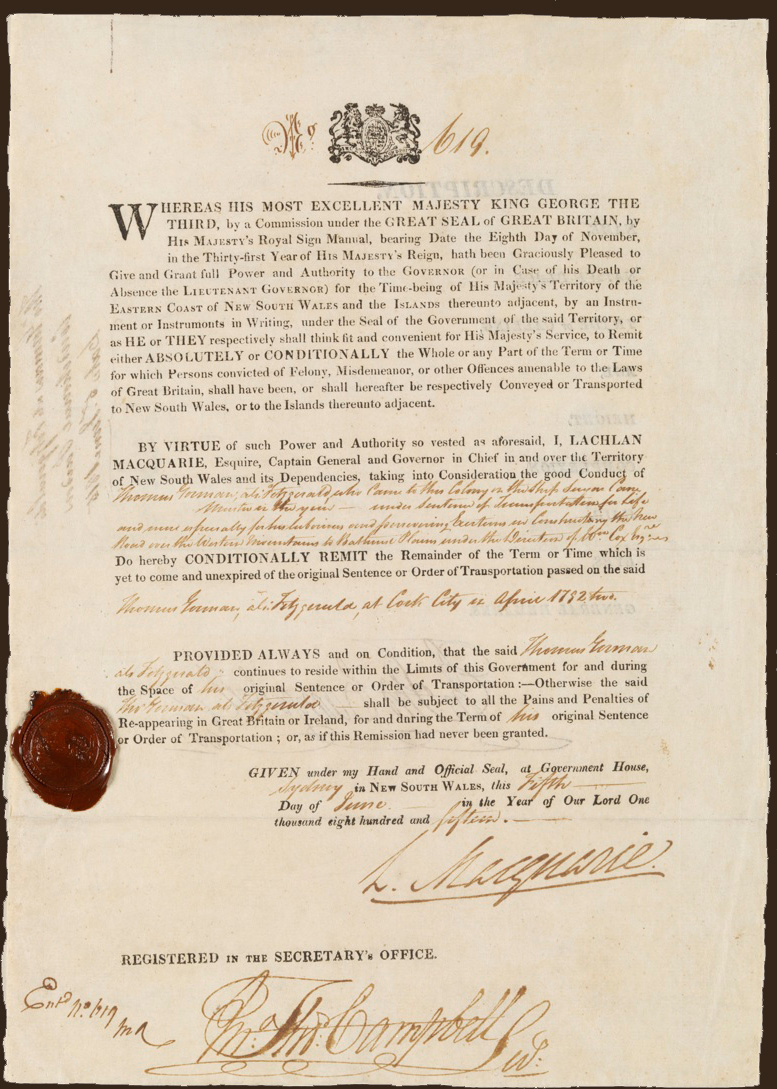 No. 619.
WHEREAS HIS MOST EXCELLENT MAJESTY KING GEORGE THE
THIRD, by a Commission under the GREAT SEAL of GREAT BRITAIN, by
HIS MAJESTY's Royal Sign Manual, bearing Date the Eighth Day of November,
in the Thirty-first Year of HIS MAJESTY's Reign, hath been Graciously Pleased to
Give and Grant full Power and Authority to the GOVERNOR (or in Case of his Death or
Absence the LIEUTENANT GOVERNOR) for the Time-being of His Majesty's Territory of the
EASTERN COAST of NEW SOUTH WALES and the ISLANDS thereunto adjacent, by an Instru-
ment or Instruments in Writing, under the Seal of the Government of the said Territory, or
as HE or THEY respectively shall think fit and convenient for His Majesty's Service, to Remit
either ABSOLUTELY or CONDITIONALLY the Whole or any Part of the Term or Time
for which Persons convicted of Felony, Misdemeanor, or other Offences amenable to the Laws
of Great Britain, shall have been, or shall hereafter be respectively Conveyed or Transported
to New South Wales, or to the Islands thereunto adjacent.
BY VIRTUE of such Power and Authority so vested as aforesaid, I, LACHLAN
MACQUARIE, Esquire, Captain General and Governor in Chief in and over the Territory
of New South Wales and its Dependencies, taking into Consideration the good Conduct of
Thomas Gorman, als Fitzgerald, who Came to this Colony in the Ship
Master in the year — under Sentence of Transportation for Life
and more especially for his laborious and persevering Exertions in Constructing the New
Road over the Western Mountains to Bathurst Plains under the Direction of Wm Cox Esqre
Do hereby CONDITIONALLY REMIT the Remainder of the Term or Time which is
yet to come and unexpired of the original Sentence or Order of Transportation passed on the said
Thomas Gorman, als Fitzgerald, at Cork City in April
PROVIDED ALWAYS and on Condition, that the said Thomas Gorman
als Fitzgerald continues to reside within the Limits of this Government for and during
the Space of his original Sentence or Order of Transportation :—Otherwise the said
Thos Gorman als Fitzgerald — shall be subject to all the Pains and Penalties of
Re-appearing in Great Britain or Ireland, for and during the Term of his original Sentence
or Order of Transportation ; or, as if this Remission had never been granted.
GIVEN under my Hand and Official Seal, at Government House,
Sydney in NEW SOUTH WALES, this Fifth —
Day of June. — in the Year of Our Lord One
thousand eight hundred and fifteen. —
L. Macquarie.
REGISTERED IN THE SECRETARY's OFFICE.
Entd No 619
Jno. Thos. Campbell Secy.